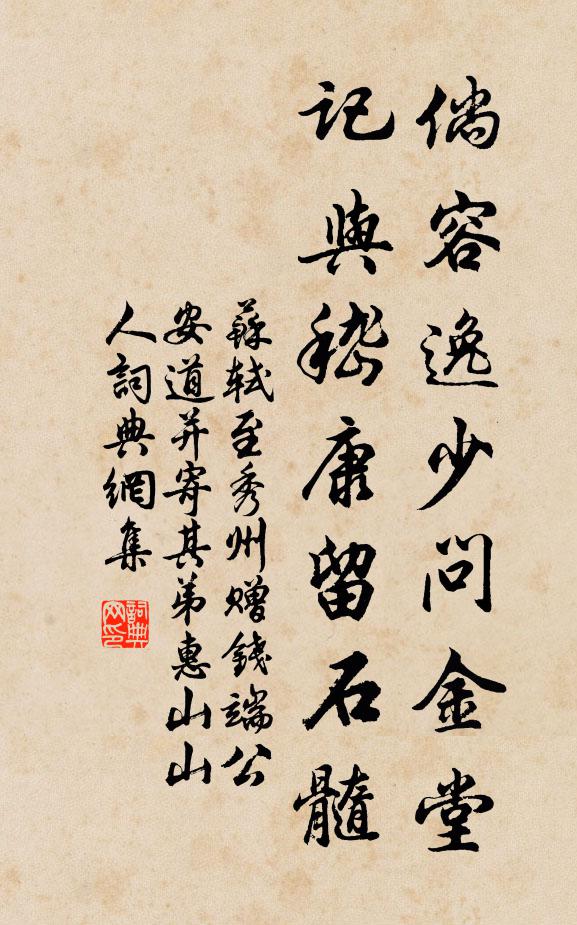 倘容逸少問金堂
記與嵇康留石髓
蘇軾至秀州贈錢端公
安道并寄其弟惠山山
人詞典網集
詞典
网印